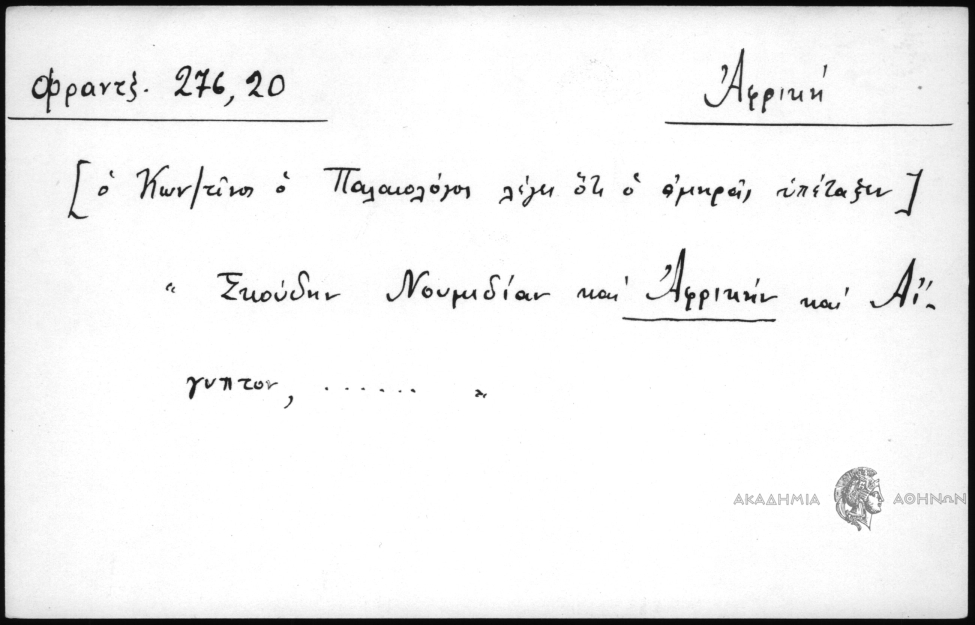 Φραντζ. 276,20
Ἀφρική
[ὁ Κων/τῖνος ὁ Παλαιολόγος λέγει ὅτι ὁ ἀμηρᾶς ὑπέταξεν]
“ Σκούδην Νουμιδίαν καὶ Ἀφρικήν καὶ Αἴ-
γυπτον, ...... „
ΑΚΑΔΗΜΙΑ ΑΘΗΝΩΝ